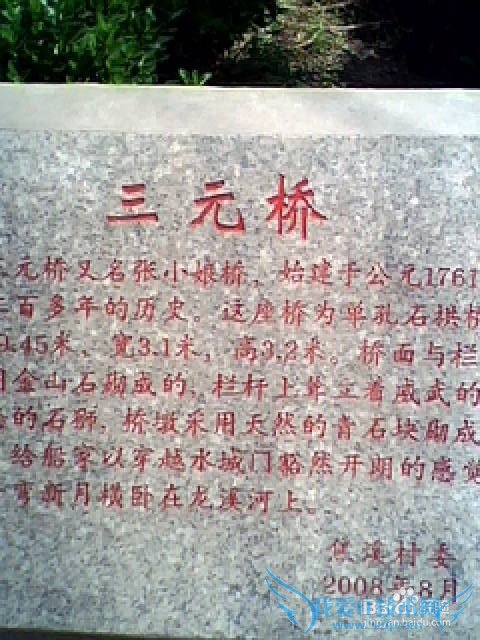 三元桥
元桥又名张小娘桥，始建于公元1761
二百多年的历史。这座桥为单孔石拱桥
.45米，宽3.1米，高3.2米。桥面与栏
用金山石砌成的，栏杆上耸立着威武的
的石狮，桥墩采用天然的青石块砌成
给船穿以穿越水城门豁然开朗的感觉
弯新月横卧在龙溪河上。
焦溪村委
2008年8月
jingyan.baidu.com